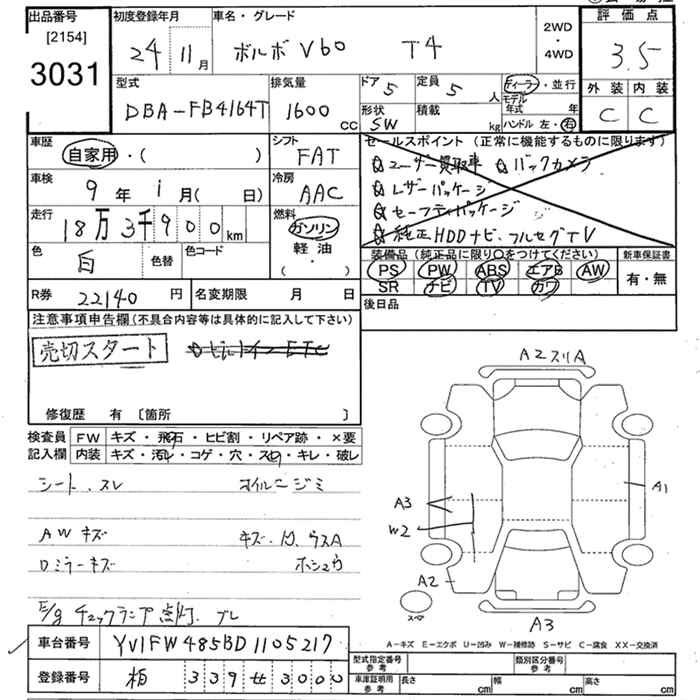 出品番号
[2154]
3031
初度登録年月
24年 11月
車名・グレード
ボルボ V60 T4
2WD
・
4WD
評価点
3.5
外装 内装
C C
型式
DBA-FB4164T
排気量
1600 CC
ドア 5
定員 5 人
形状 SW
積載 kg
ディーラー・並行
モデル年式 年
ハンドル 左・右
車歴
自家用・( )
シフト
FAT
セールスポイント (正常に機能するものに限ります)
☆ユーザー買取車 ☆バックカメラ
☆レザーパッケージ
☆セーフティパッケージ
☆純正HDDナビ、フルセグTV
車検
9年 1月( 日)
冷房
AAC
走行
18万3千900km
燃料
ガソリン
軽油
・( )
色
白
色替
色コード
装備品 (純正品に限り○をつけてください)
PS PW ABS エアB AW
SR ナビ TV カワ
新車保証書
有・無
R券 22140円
名変期限 月 日
後日品
注意事項申告欄(不具合内容等は具体的に記入して下さい)
売切スタート
ビルトインETC
修復歴 有 〔箇所 〕
検査員記入欄
FW キズ・飛石・ヒビ割・リペア跡・×要
内装 キズ・汚レ・コゲ・穴・スレ・キレ・破レ
シート、スレ オイルニジミ
AWキズ
ロミラーキズ
E/g チェックランプ点灯、ブレ
A2スリA
A3
W2
A2
A1
A3
スペア
A-キズ E-エクボ U-凹み W-補修跡 S-サビ C-腐食 XX-交換済
車台番号 YV1FW485BD1105217
登録番号 柏 339 せ 3000
型式指定番号 参考
類別区分番号 参考
車庫証明用 参考
長さ cm
幅 cm
高さ cm